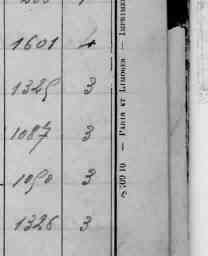 1601 4
1325 3
1087 3
1090 3
1326 3
8709 10 — PARIS ET LIMOGES. — IMPRIMER